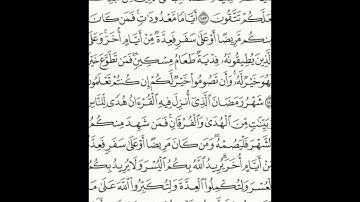 لَعَلَّكُمْ تَتَّقُونَ ١٨٣ أَيَّامًا مَّعْدُودَٰتٍ فَمَن كَانَ
مِنكُم مَّرِيضًا أَوْ عَلَىٰ سَفَرٍ فَعِدَّةٌ مِّنْ أَيَّامٍ أُخَرَ وَعَلَى
ٱلَّذِينَ يُطِيقُونَهُۥ فِدْيَةٌ طَعَامُ مِسْكِينٍ فَمَن تَطَوَّعَ خَيْرًا
فَهُوَ خَيْرٌ لَّهُۥ وَأَن تَصُومُوا۟ خَيْرٌ لَّكُمْ إِن كُنتُمْ تَعْلَمُونَ
شَهْرُ رَمَضَانَ ٱلَّذِىٓ أُنزِلَ فِيهِ ٱلْقُرْءَانُ هُدًى لِّلنَّاسِ
وَبَيِّنَٰتٍ مِّنَ ٱلْهُدَىٰ وَٱلْفُرْقَانِ فَمَن شَهِدَ مِنكُمُ
ٱلشَّهْرَ فَلْيَصُمْهُ وَمَن كَانَ مَرِيضًا أَوْ عَلَىٰ سَفَرٍ فَعِدَّةٌ
مِّنْ أَيَّامٍ أُخَرَ يُرِيدُ ٱللَّهُ بِكُمُ ٱلْيُسْرَ وَلَا يُرِيدُ بِكُمُ
ٱلْعُسْرَ وَلِتُكْمِلُوا۟ ٱلْعِدَّةَ وَلِتُكَبِّرُوا۟ ٱللَّهَ عَلَىٰ مَا